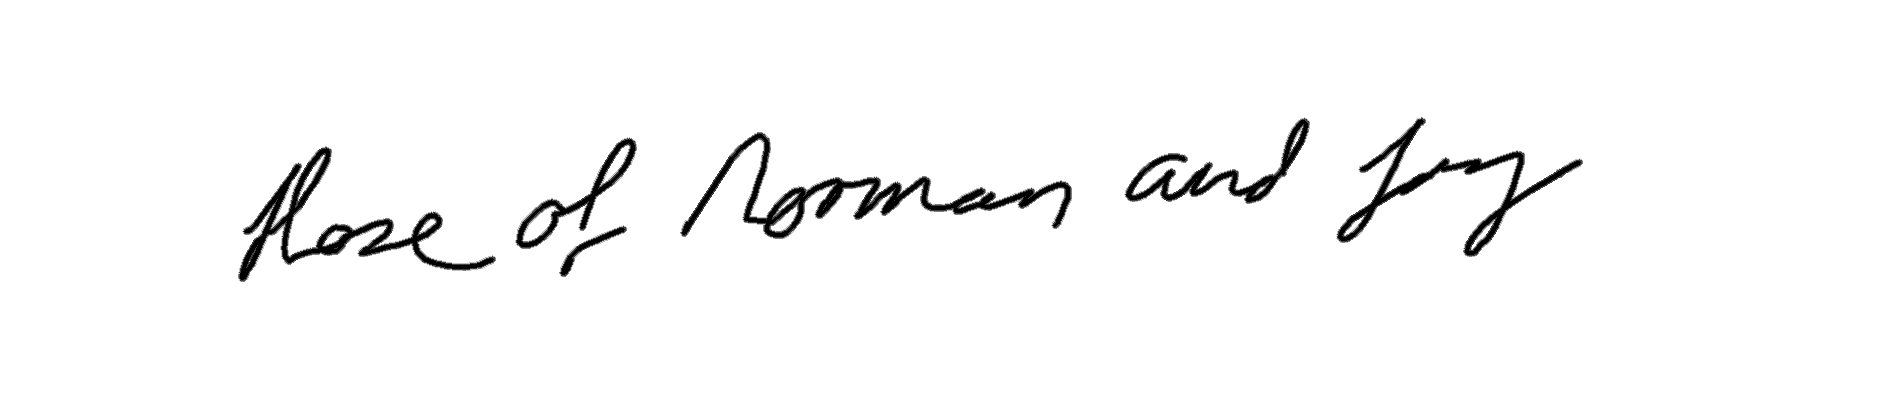 Hose of Norman and Joy